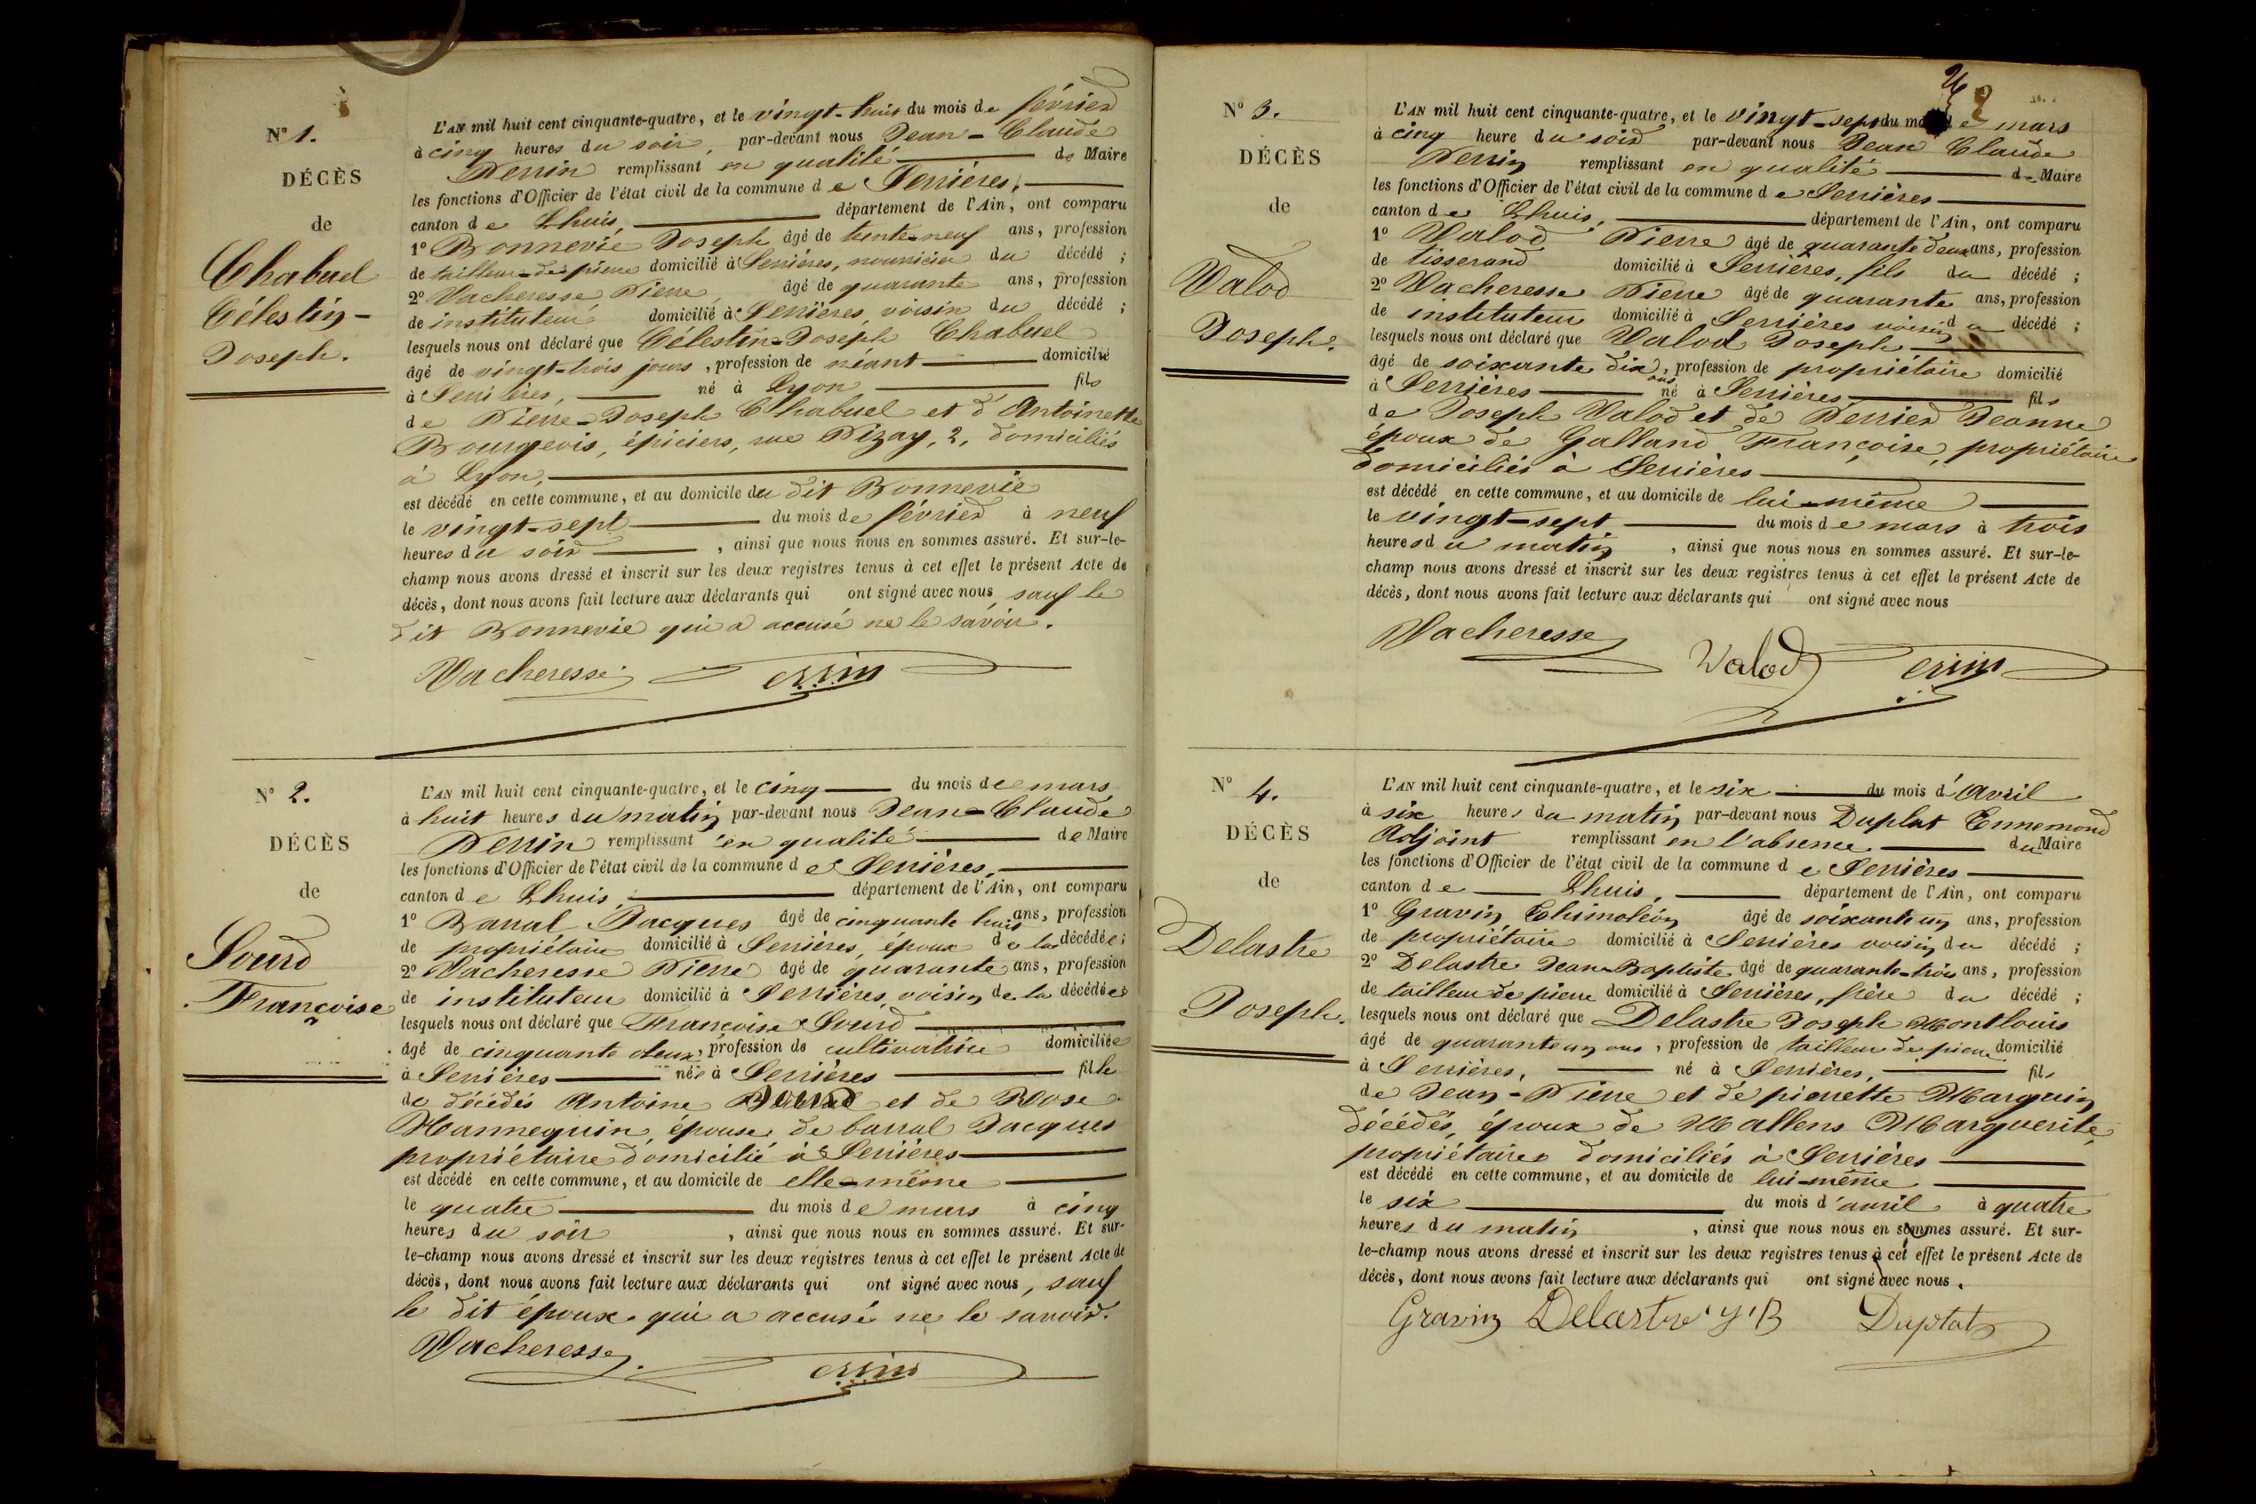 N° 1.
DÉCÈS
de
Chabuel
Célestin-
Joseph.
L'AN mil huit cent cinquante-quatre, et le vingt-huit du mois de février
à cinq heures du soir, par-devant nous Jean-Claude
Perrin remplissant en qualité de Maire
les fonctions d'Officier de l'état civil de la commune de Serrières,
canton de Lhuis, département de l'Ain, ont comparu
1° Bonnevie Joseph âgé de trente-neuf ans, profession
de tailleur de pierre domicilié à Serrières, nourricier du décédé ;
2° Vacheresse Pierre, âgé de quarante ans, profession
de instituteur domicilié à Serrières, voisin du décédé ;
lesquels nous ont déclaré que Célestin-Joseph Chabuel
âgé de vingt-trois jours, profession de néant domicilié
à Serrières, né à Lyon fils
de Pierre-Joseph Chabuel et d'Antoinette
Bourgeois, épiciers, rue Pizay, 2, domiciliés
à Lyon,
est décédé en cette commune, et au domicile du dit Bonnevie
le vingt-sept du mois de février à neuf
heures du soir, ainsi que nous nous en sommes assuré. Et sur-le-
champ nous avons dressé et inscrit sur les deux registres tenus à cet effet le présent Acte de
décès, dont nous avons fait lecture aux déclarants qui ont signé avec nous, sauf le
dit Bonnevie qui a accusé ne le savoir.
Vacheresse Perrin
N° 2.
DÉCÈS
de
Sourd
Françoise
L'AN mil huit cent cinquante-quatre, et le cinq du mois de mars
à huit heures du matin par-devant nous Jean-Claude
Perrin remplissant en qualité de Maire
les fonctions d'Officier de l'état civil de la commune de Serrières,
canton de Lhuis, département de l'Ain, ont comparu
1° Barral Jacques âgé de cinquante huit ans, profession
de propriétaire domicilié à Serrières, époux de la décédée ;
2° Vacheresse Pierre âgé de quarante ans, profession
de instituteur domicilié à Serrières, voisin de la décédée
lesquels nous ont déclaré que Françoise Sourd
âgé de cinquante deux, profession de cultivatrice domiciliée
à Serrières née à Serrières fille
de décédés Antoine Sourd et de Rose
Mannequin, épouse de barral Jacques
propriétaire domicilié à Serrières
est décédé en cette commune, et au domicile de elle-même
le quatre du mois de mars à cinq
heures du soir, ainsi que nous nous en sommes assuré. Et sur-
le-champ nous avons dressé et inscrit sur les deux registres tenus à cet effet le présent Acte de
décès, dont nous avons fait lecture aux déclarants qui ont signé avec nous, sauf
le dit époux qui a accusé ne le savoir.
Vacheresse Perrin
N° 3.
DÉCÈS
de
Valod
Joseph.
L'AN mil huit cent cinquante-quatre, et le vingt-sept du mois de mars
à cinq heure du soir par-devant nous Jean Claude
Perrin remplissant en qualité de Maire
les fonctions d'Officier de l'état civil de la commune de Serrières
canton de Lhuis, département de l'Ain, ont comparu
1° Valod Pierre âgé de quarante deux ans, profession
de tisserand domicilié à Serrières, fils du décédé ;
2° Vacheresse Pierre âgé de quarante ans, profession
de instituteur domicilié à Serrières voisin du décédé ;
lesquels nous ont déclaré que Valod Joseph
âgé de soixante dix ans, profession de propriétaire domicilié
à Serrières né à Serrières fils
de Joseph Valod et de Perrier Jeanne
époux de Galland Françoise, propriétaire
domiciliés à Serrières
est décédé en cette commune, et au domicile de lui-même
le vingt-sept du mois de mars à trois
heures du matin, ainsi que nous nous en sommes assuré. Et sur-le-
champ nous avons dressé et inscrit sur les deux registres tenus à cet effet le présent Acte de
décès, dont nous avons fait lecture aux déclarants qui ont signé avec nous
Vacheresse Valod Perrin
N° 4.
DÉCÈS
de
Delastre
Joseph.
L'AN mil huit cent cinquante-quatre, et le six du mois d'Avril
à six heures du matin par-devant nous Duplat Ennemond
Adjoint remplissant en l'absence du Maire
les fonctions d'Officier de l'état civil de la commune de Serrières
canton de Lhuis, département de l'Ain, ont comparu
1° Gravin Thimoléon âgé de soixante un ans, profession
de propriétaire domicilié à Serrières voisin du décédé ;
2° Delastre Jean-Baptiste âgé de quarante-trois ans, profession
de tailleur de pierre domicilié à Serrières, frère du décédé ;
lesquels nous ont déclaré que Delastre Joseph Montlouis
âgé de quarante un ans, profession de tailleur de pierre domicilié
à Serrières, né à Serrières, fils
de Jean-Pierre et de pierrette Marguin
décédés, époux de Mallens Marguerite,
propriétaires domiciliés à Serrières
est décédé en cette commune, et au domicile de lui-même
le six du mois d'avril à quatre
heures du matin, ainsi que nous nous en sommes assuré. Et sur-
le-champ nous avons dressé et inscrit sur les deux registres tenus à cet effet le présent Acte de
décès, dont nous avons fait lecture aux déclarants qui ont signé avec nous.
Gravin Delastre J B Duplat